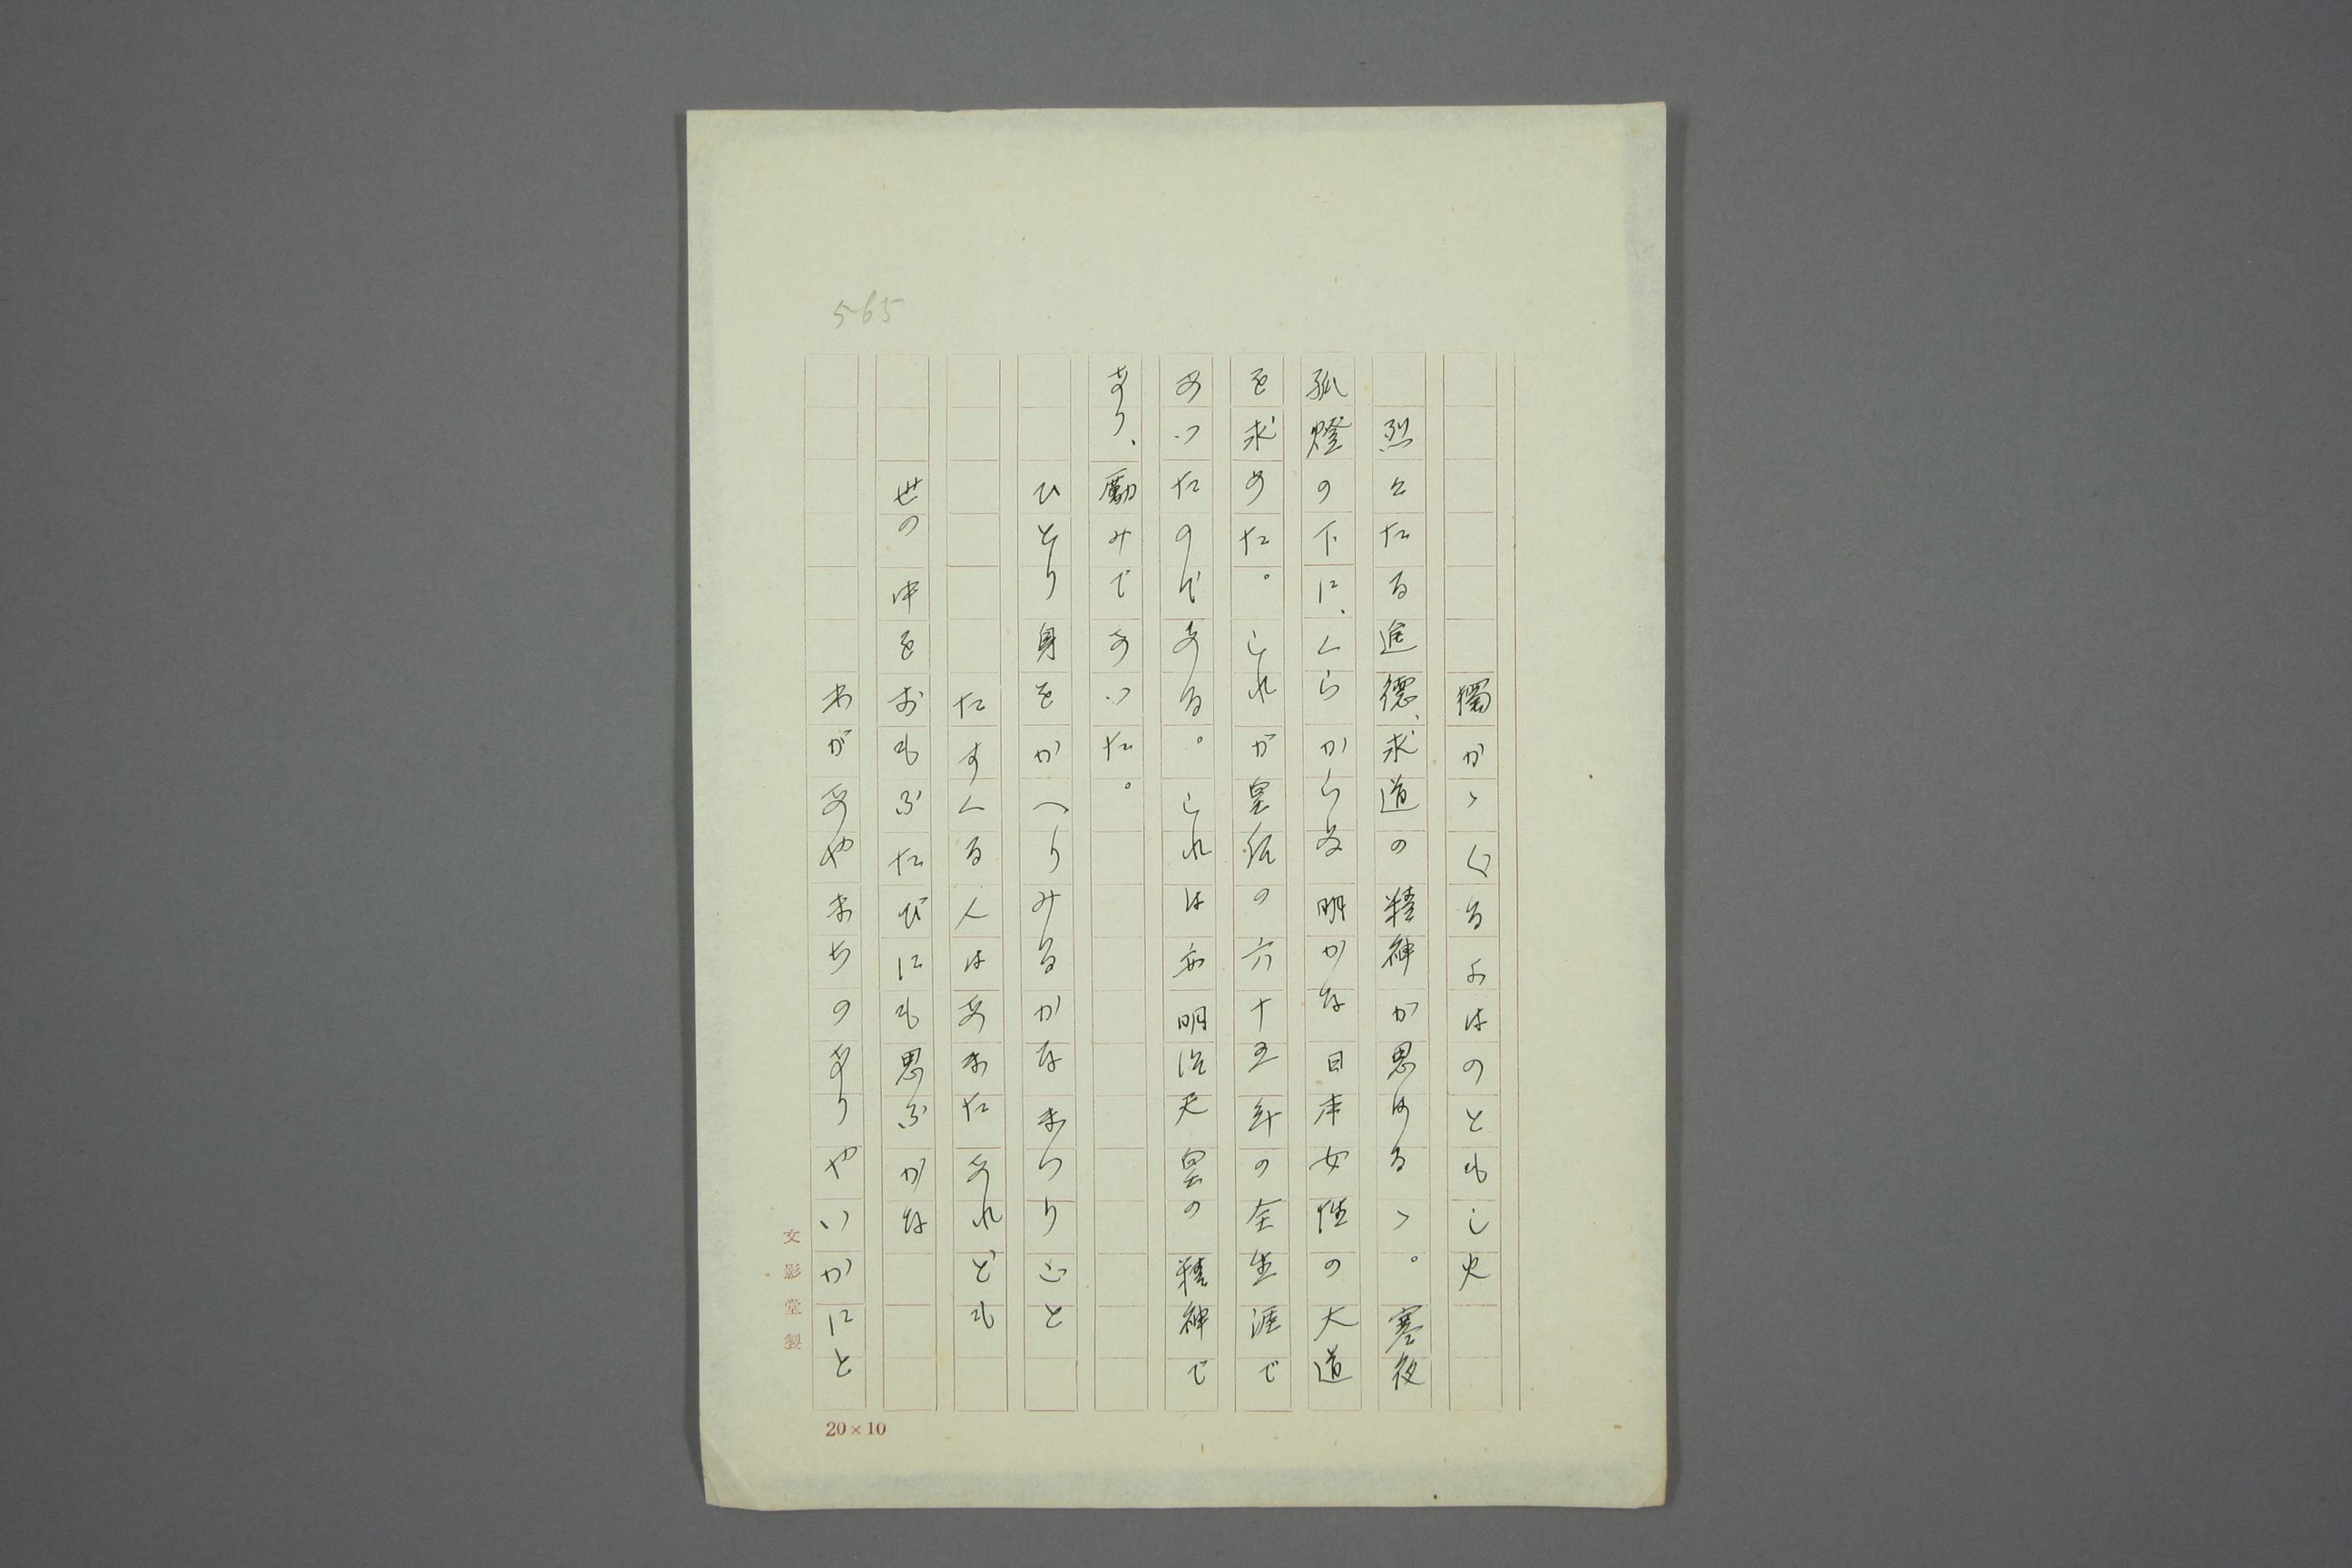 565
獨かゝぐるよはのともし火
烈々たる進德、求道の精神が思はるゝ。寒夜
孤燈の下に、くらからぬ明かな日本女性の大道
を求めた。これが皇后の六十五年の全生涯で
あつたのである。これは亦明治天皇の精神で
あり、勵みであつた。
ひとり身をかへりみるかなまつりごと
たすくる人はあまたあれども
世の中をおもふたびにも思ふかな
わがあやまちのありやいかにと
文影堂製
20×10